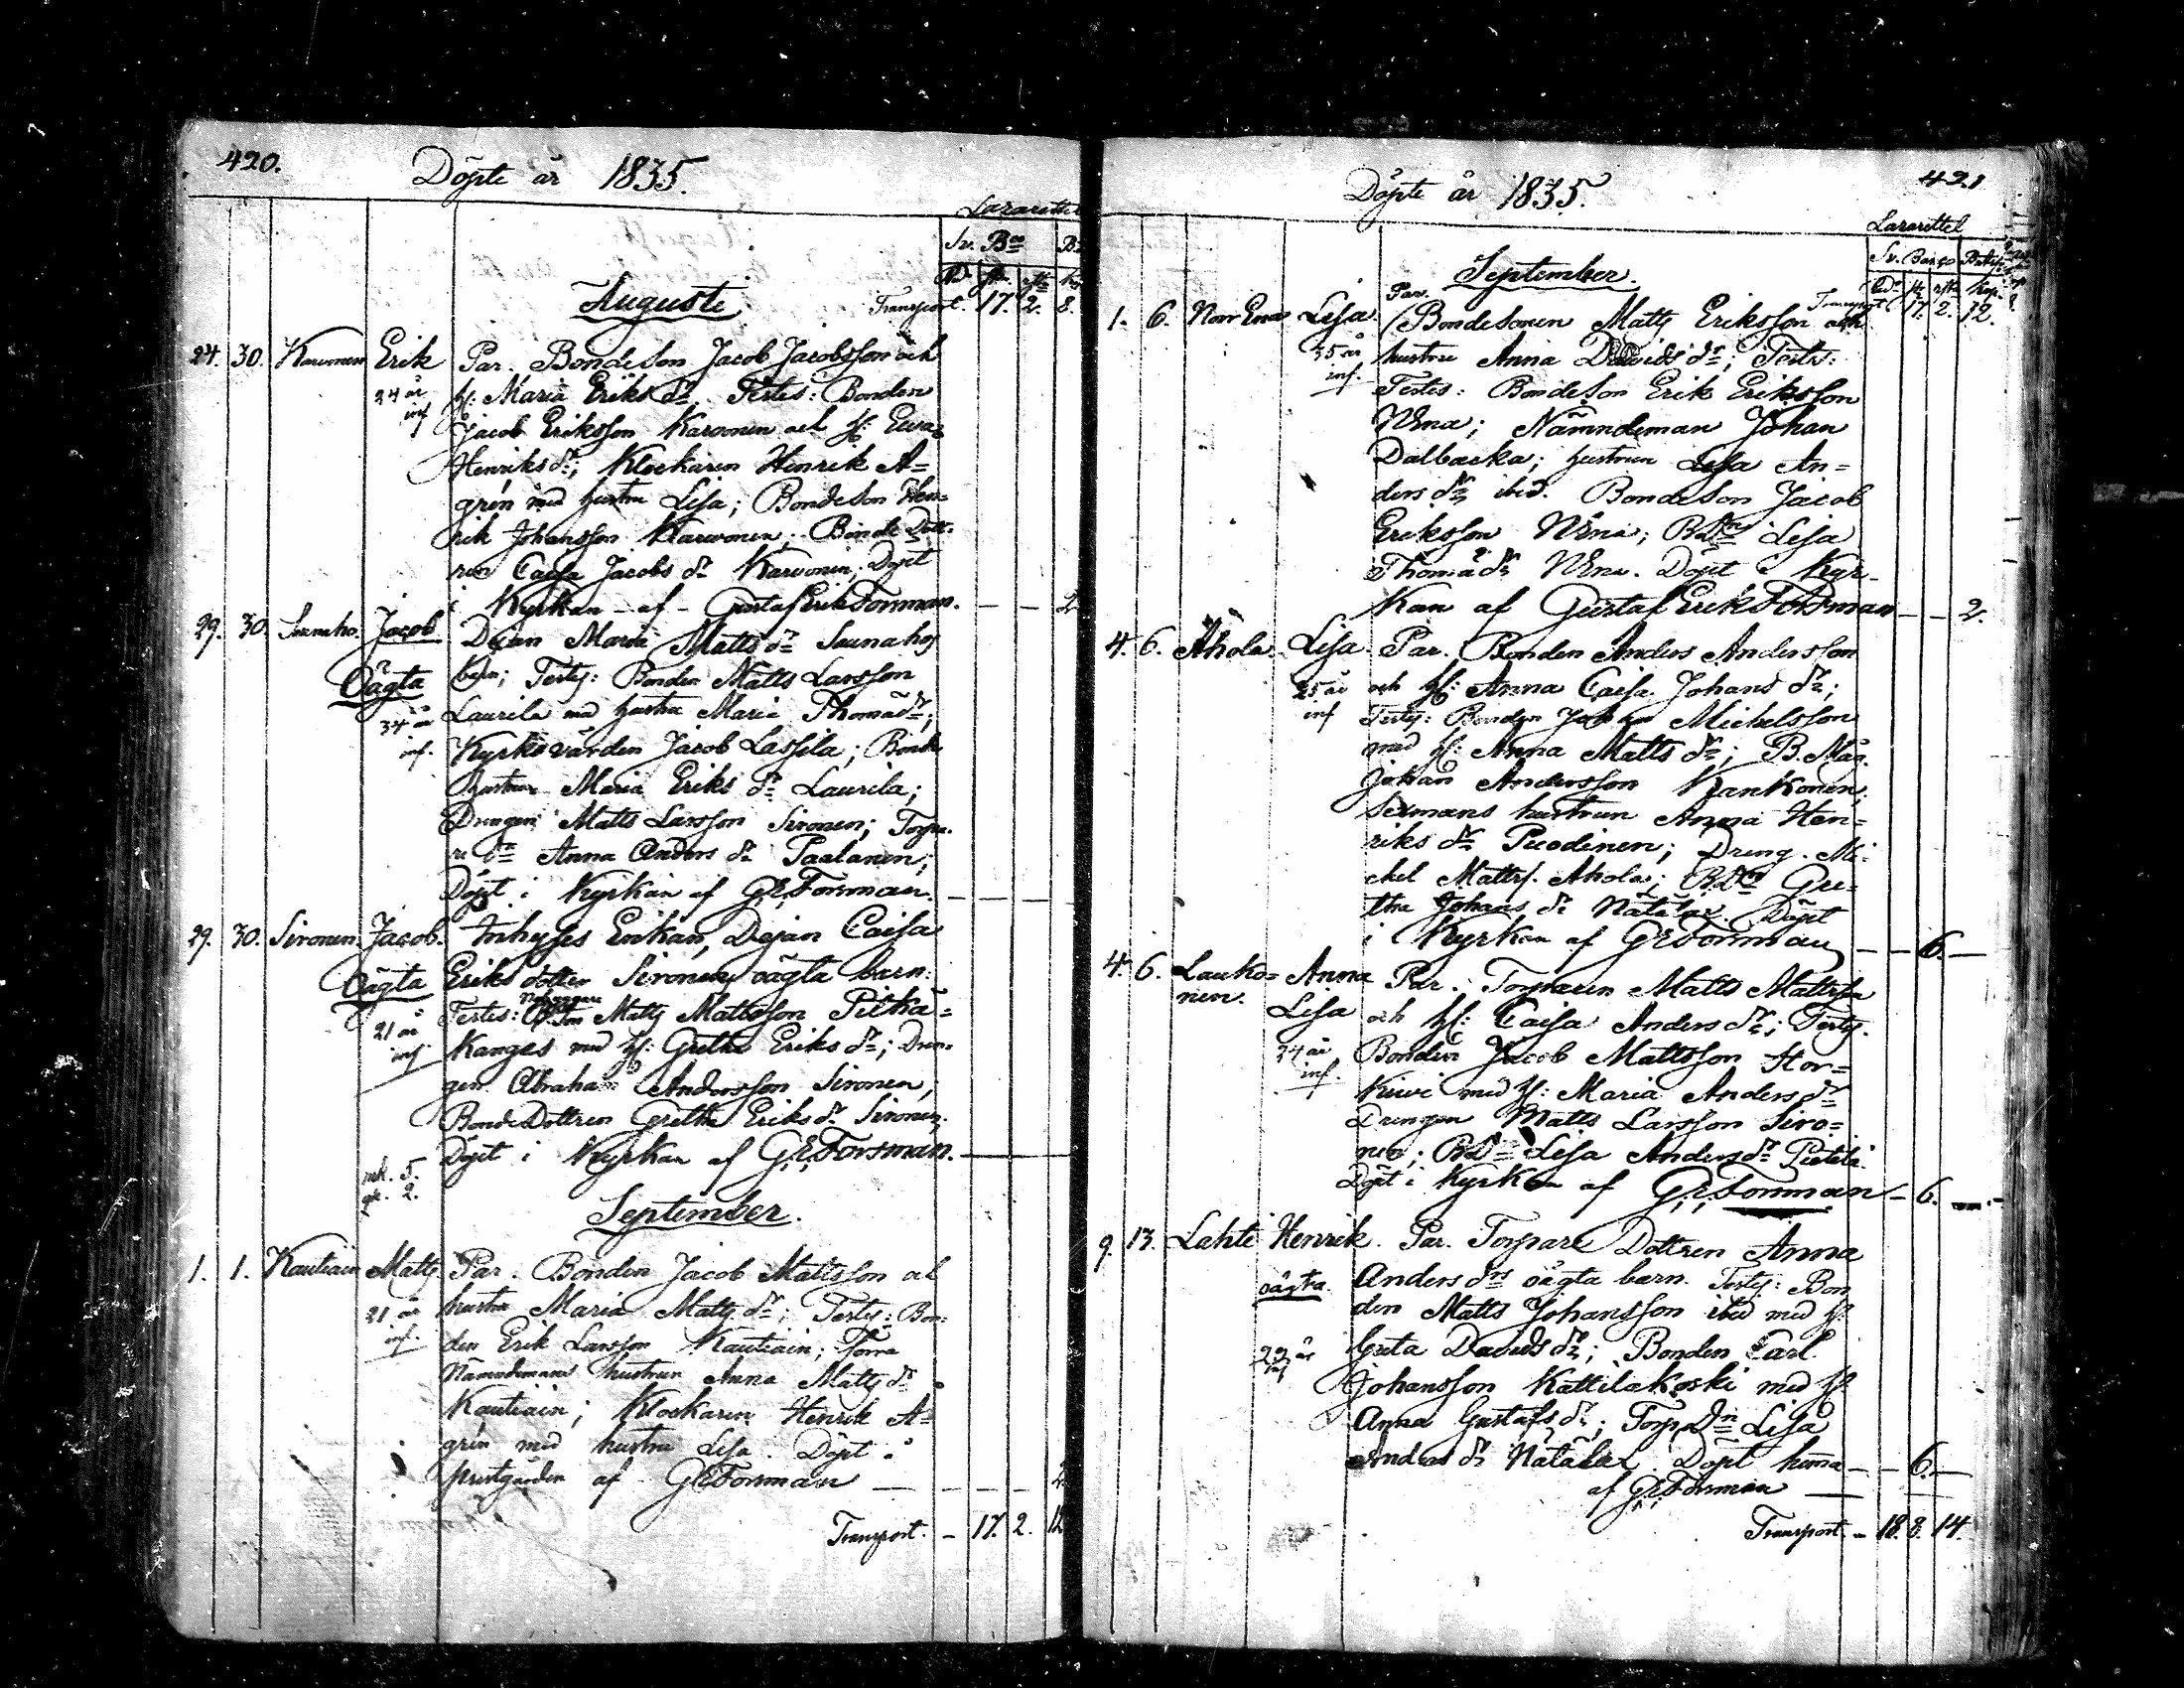 420.
Döpte år 1835.
Lazarettet
Sv. B:co
Augusti
Transport. 17. 2. 8.
24. 30. Karvonen Erik Par. Bondeson Jacob Jacobsson och
24 år h: Maria Eriks dr. Testes: Bonden
inf Jacob Eriksson Karvonen och h: Eva
Henriks dr; Klockaren Henrik A=
grén med hustru Lisa; Bondeson Hen=
rik Johansson Karvonen; Bonde Dott=
ren Caisa Jacobs dr Karvonen; Döpt
i Kyrkan af Gustaf Erik Forsman. — — 2
29. 30. Saunaho. Jacob Dejan Maria Matts dr Saunahos
Oägta barn; Testes: Bonden Matts Larsson
34 år Laurila med hustru Maria Thomædr;
inf. Kyrkovärden Jacob Lassila; Bonde
hustrun Maria Eriks dr Laurila;
Drengen Matts Larsson Sironen; Torpa=
re dn Anna Anders dr Paalanen;
Döpt i Kyrkan af G.E. Forsman. — — — —
29. 30. Sironen Jacob. Inhyses Enkan, Dejan Caisa
Oägta Eriks dotter Sironens oägta barn:
Testes: Matts Mattsson Pitkä=
21 år
inf. Kangas med h: Gretha Eriks dr; Dren=
gen Abraham Andersson Sironen;
BondeDottren Gretha Eriks dr Sironen;
Döpt i Kyrkan af G.E. Forsman. —
mk. 5.
qk. 2.
September.
1. 1. Kautiain Matts Par. Bonden Jacob Mattsson och
21 år hustru Maria Matts dr; Testes: Bon=
inf. den Erik Larsson Kautiain; Förra
Nämndemans hustrun Anna Matts dr
Kautiain; Klockaren Henrik A=
grén med hustru Lisa. Döpt i
prestgården af G.E. Forsman — — — — 2
Transport. — 17. 2. 12
421
Döpte år 1835.
Lazarettet
Sv. Banco
September.
Transport 17. 2. 12.
1. 6. Norr Ena Lisa Par. Bondesonen Matts Eriksson och
35 år hustru Anna Davids dr; Testes:
inf. Testes: Bondeson Erik Eriksson
NEna; Nämndeman Johan
Dalbacka; hustrun Lisa An=
ders dr ibid. Bondeson Jacob
Eriksson NEna; BDn Lisa
Thomædr NEna. Döpt i Kyr=
kan af Gustaf Erik Forsman — — 2.
4. 6. Ahola Lisa Par. Bonden Anders Andersson
25 år och h: Anna Caisa Johans dr;
inf Testes: Bonden Johan Michelsson
med h: Anna Matts dr; B. Måg
Johan Andersson Kankonen;
Sexmans hustrun Anna Hen=
riks dr Puodinen; Dreng. Mi=
chel Mattss. Ahola; BDn Gre=
tha Johans dr Näätälä. Döpt
i Kyrkan af G.E. Forsman — — 6. —
4. 6. Lauko= Anna Par. Torparen Matts Mattsson
nen. Lisa och h: Caisa Anders dr; Testes.
34 år Bonden Jacob Mattsson Stor=
inf. Kiwi med h: Maria Anders dr
Drengen Matts Larsson Siro=
nen; BDn Lisa Anders dr Pietilä.
Döpt i Kyrkan af G.E. Forsman — 6. — —
9. 13. Lahti Henrik. Par. Torpare Dottren Anna
oägta. Anders drs oägta barn. Testes: Bon
den Matts Johansson ibid med h:
22 år Greta Davids dr; Bonden Carl
inf Johansson Kattilakoski med h:
Anna Gustafs dr; TorpDn Lisa
Anders dr Näätälä. Döpt hema — — 6. —
af G.E. Forsman —
Transport. — 18. 8. 14.